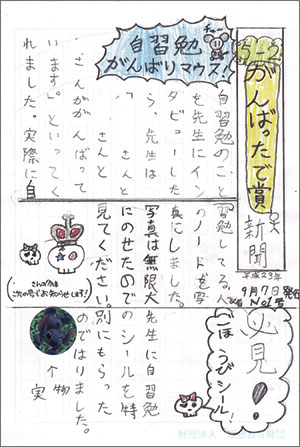 5-2
がんばったで賞
新聞
平成23年
9月7日 発行
No.1号
自習勉
がんばりマウス!
チュー
自習勉のこと
を先生にイン
タビューした
ら、先生は
、さんと
、さんと
・さんがんばって
います。」といってく
れました。実際に自
習勉している人
のノートを写
真にしました。
写真は無限大
にのせたので
見てください。
先生に自習勉
のシールを特
別にもらった
のではりました。
↑実物
さんがんは
次の号でお知らせします!
必見!
ごほうびシール!
財団法人